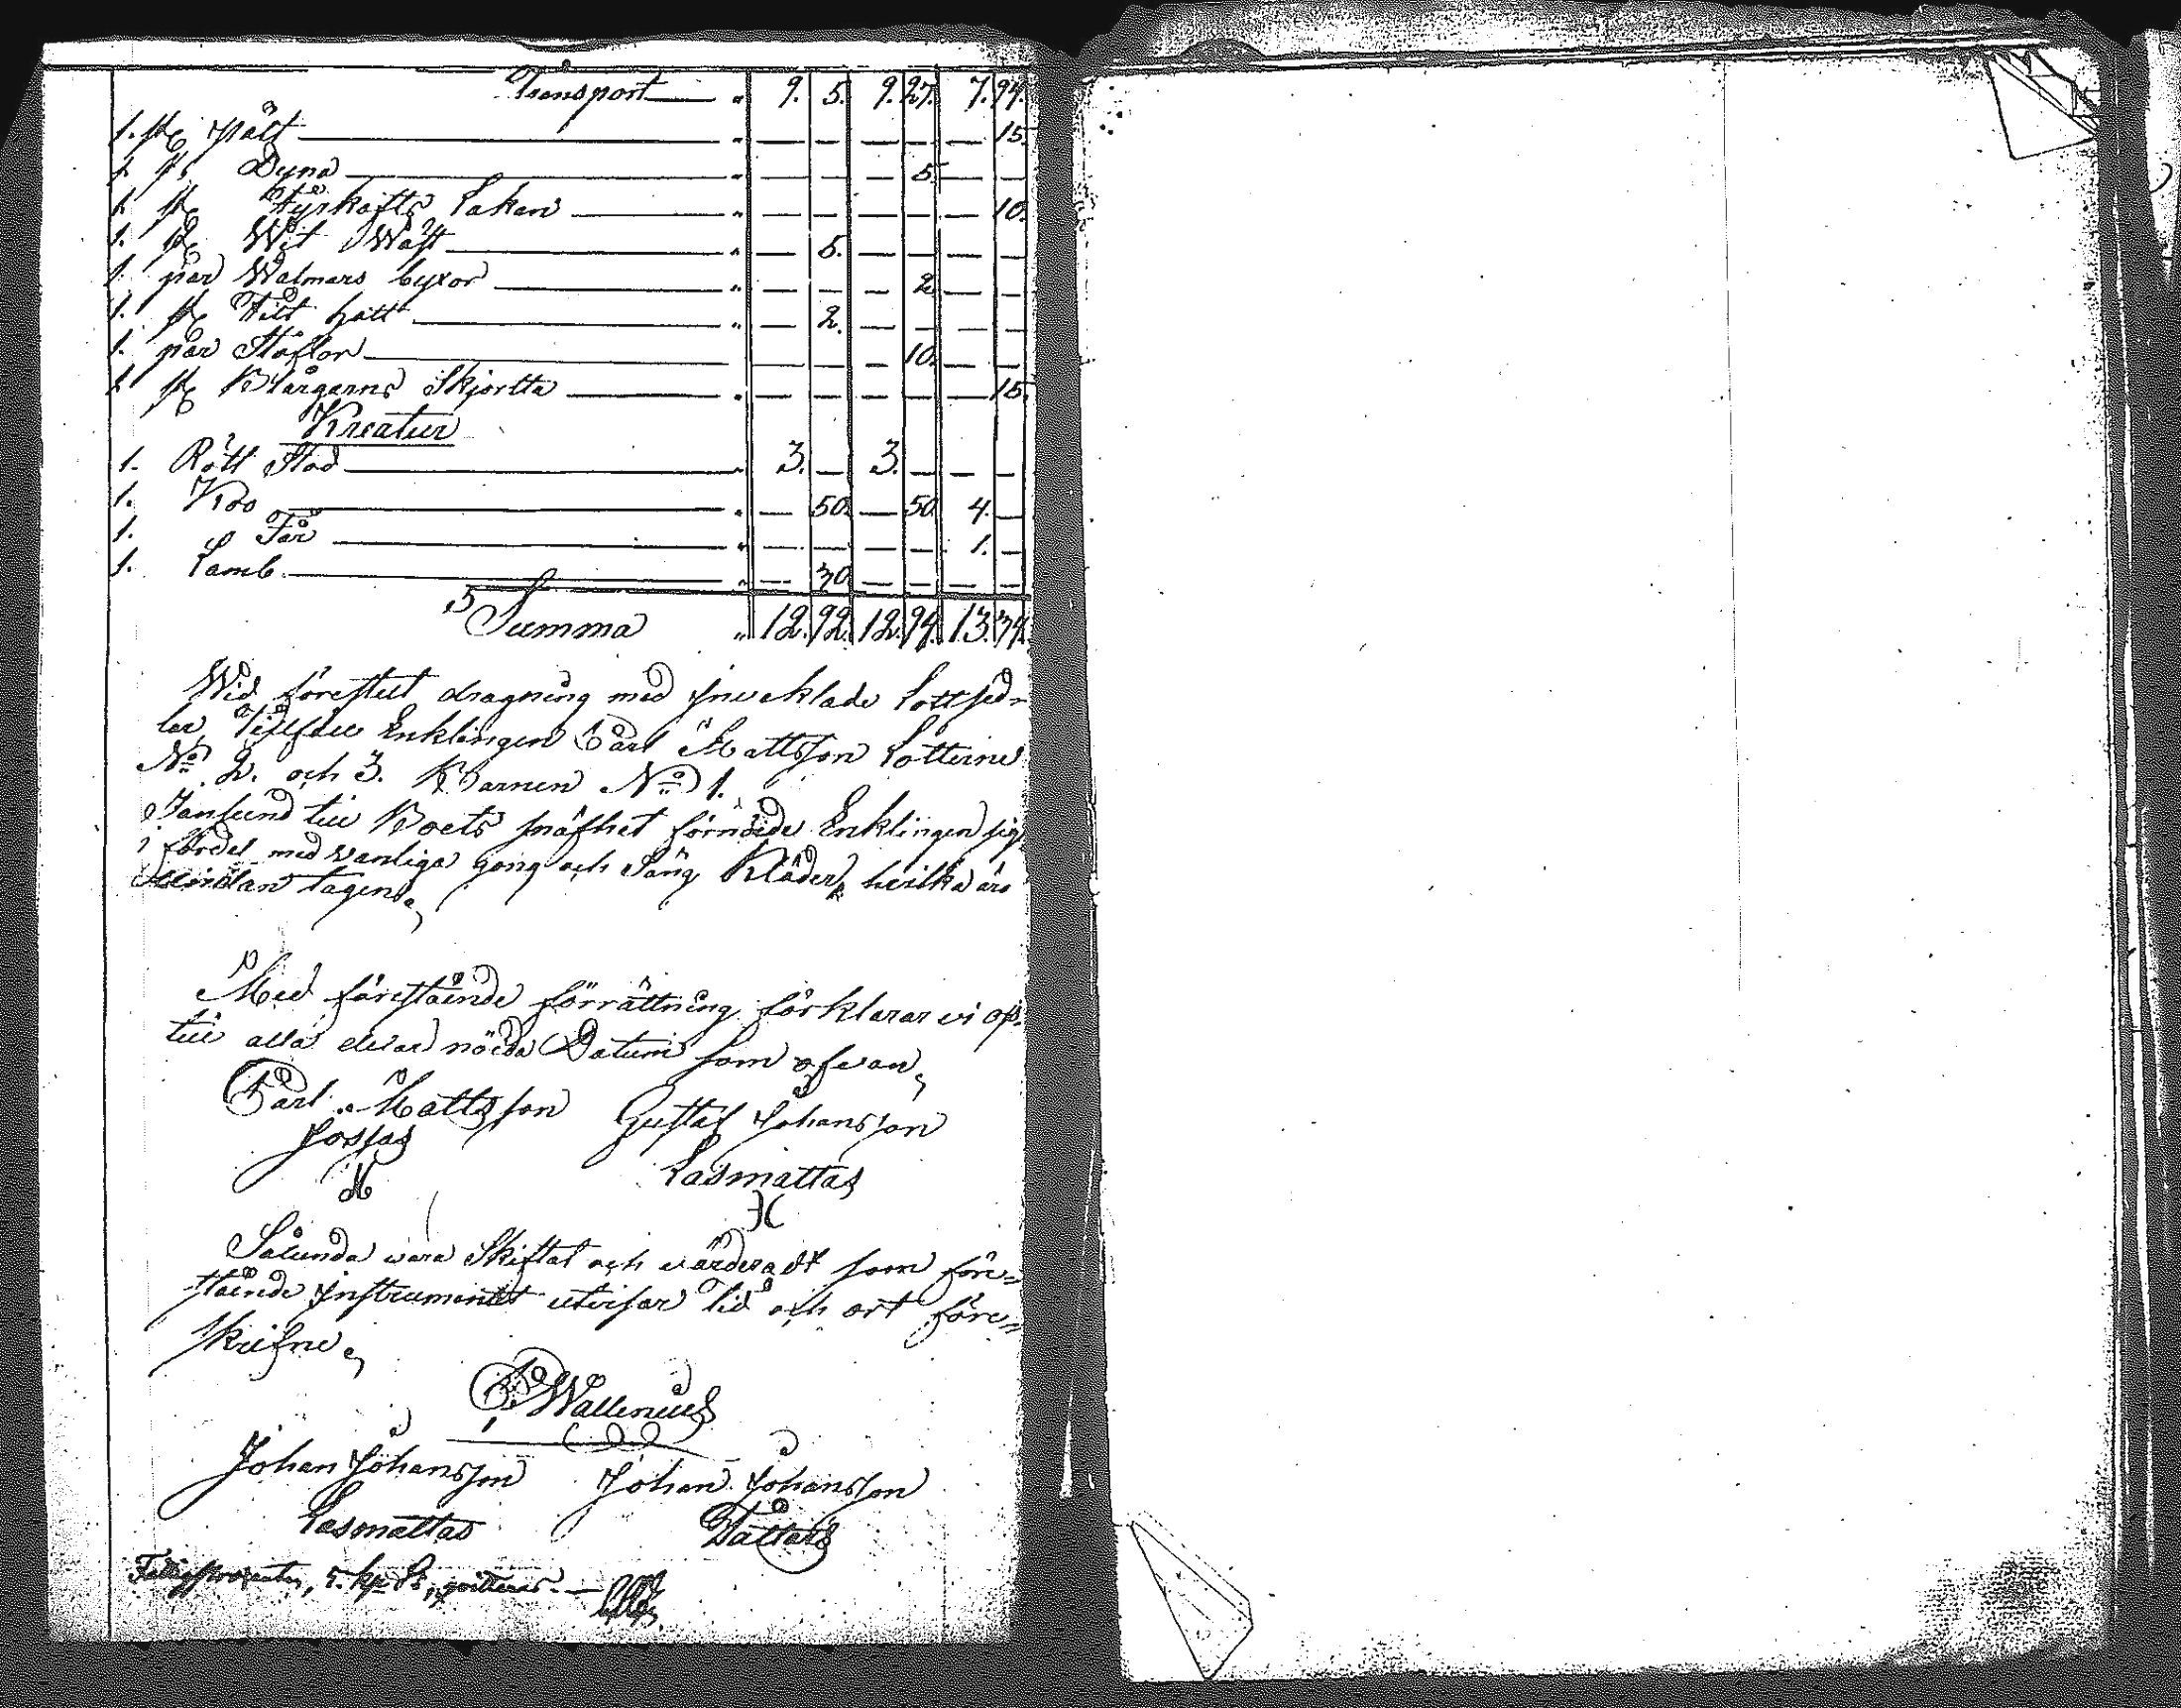 Transport „ 9. 5. 9. 27. 7. 94.
1. st: pält „ — — — — — 15.
1 st Dyna „ — — — 5. — —
1 st: Fyrskafts Lakan „ — — — — — 10.
1. st: Wit Wäst „ — 5. — — — —
1. par Walmars byxor „ — — — 2. — —
1. st: Filt hatt „ — 2. — — — —
1. par Stöflor — — — 10. — —
1 st: Blårgarns Skjortta „ — — — — — 15.
Kreatur
1. Rött Stod „ 3. — 3. — — —
1. Koo „ — 50. — 50. 4. —
1. Får „ — — — — 1. —
1. Lamb „ — 30. — — — —
Summa „ 12. 92. 12. 94. 13. 34.
Wid föreStelt dragning med Inveklade Lottsed-
lar, Tillföll Enklingen Carl Mattsson Lotterne
No 2. och 3. Barnen No 1.
Janseend till Boets snäfhet förnöide Enklingen sig
i fördel med vanliga gong och Säng Kläder, hvilka äro
undan tagen
Med föreStående förrättning förklarar vi os
till alla delar nöida Datum som ofvan
Carl Mattsson Gustaf Johansson
Jossas Lasmattas
Sålunda vara Skiftat och värderadt som före-
stående Instrumentet utvisar Tid och ort före-
skrifne
Wallenius
Johan Johansson Johan Johansson
Lasmattas Tåttars
Fattigprocenten, 5. kp. Sr, qvitteras. —